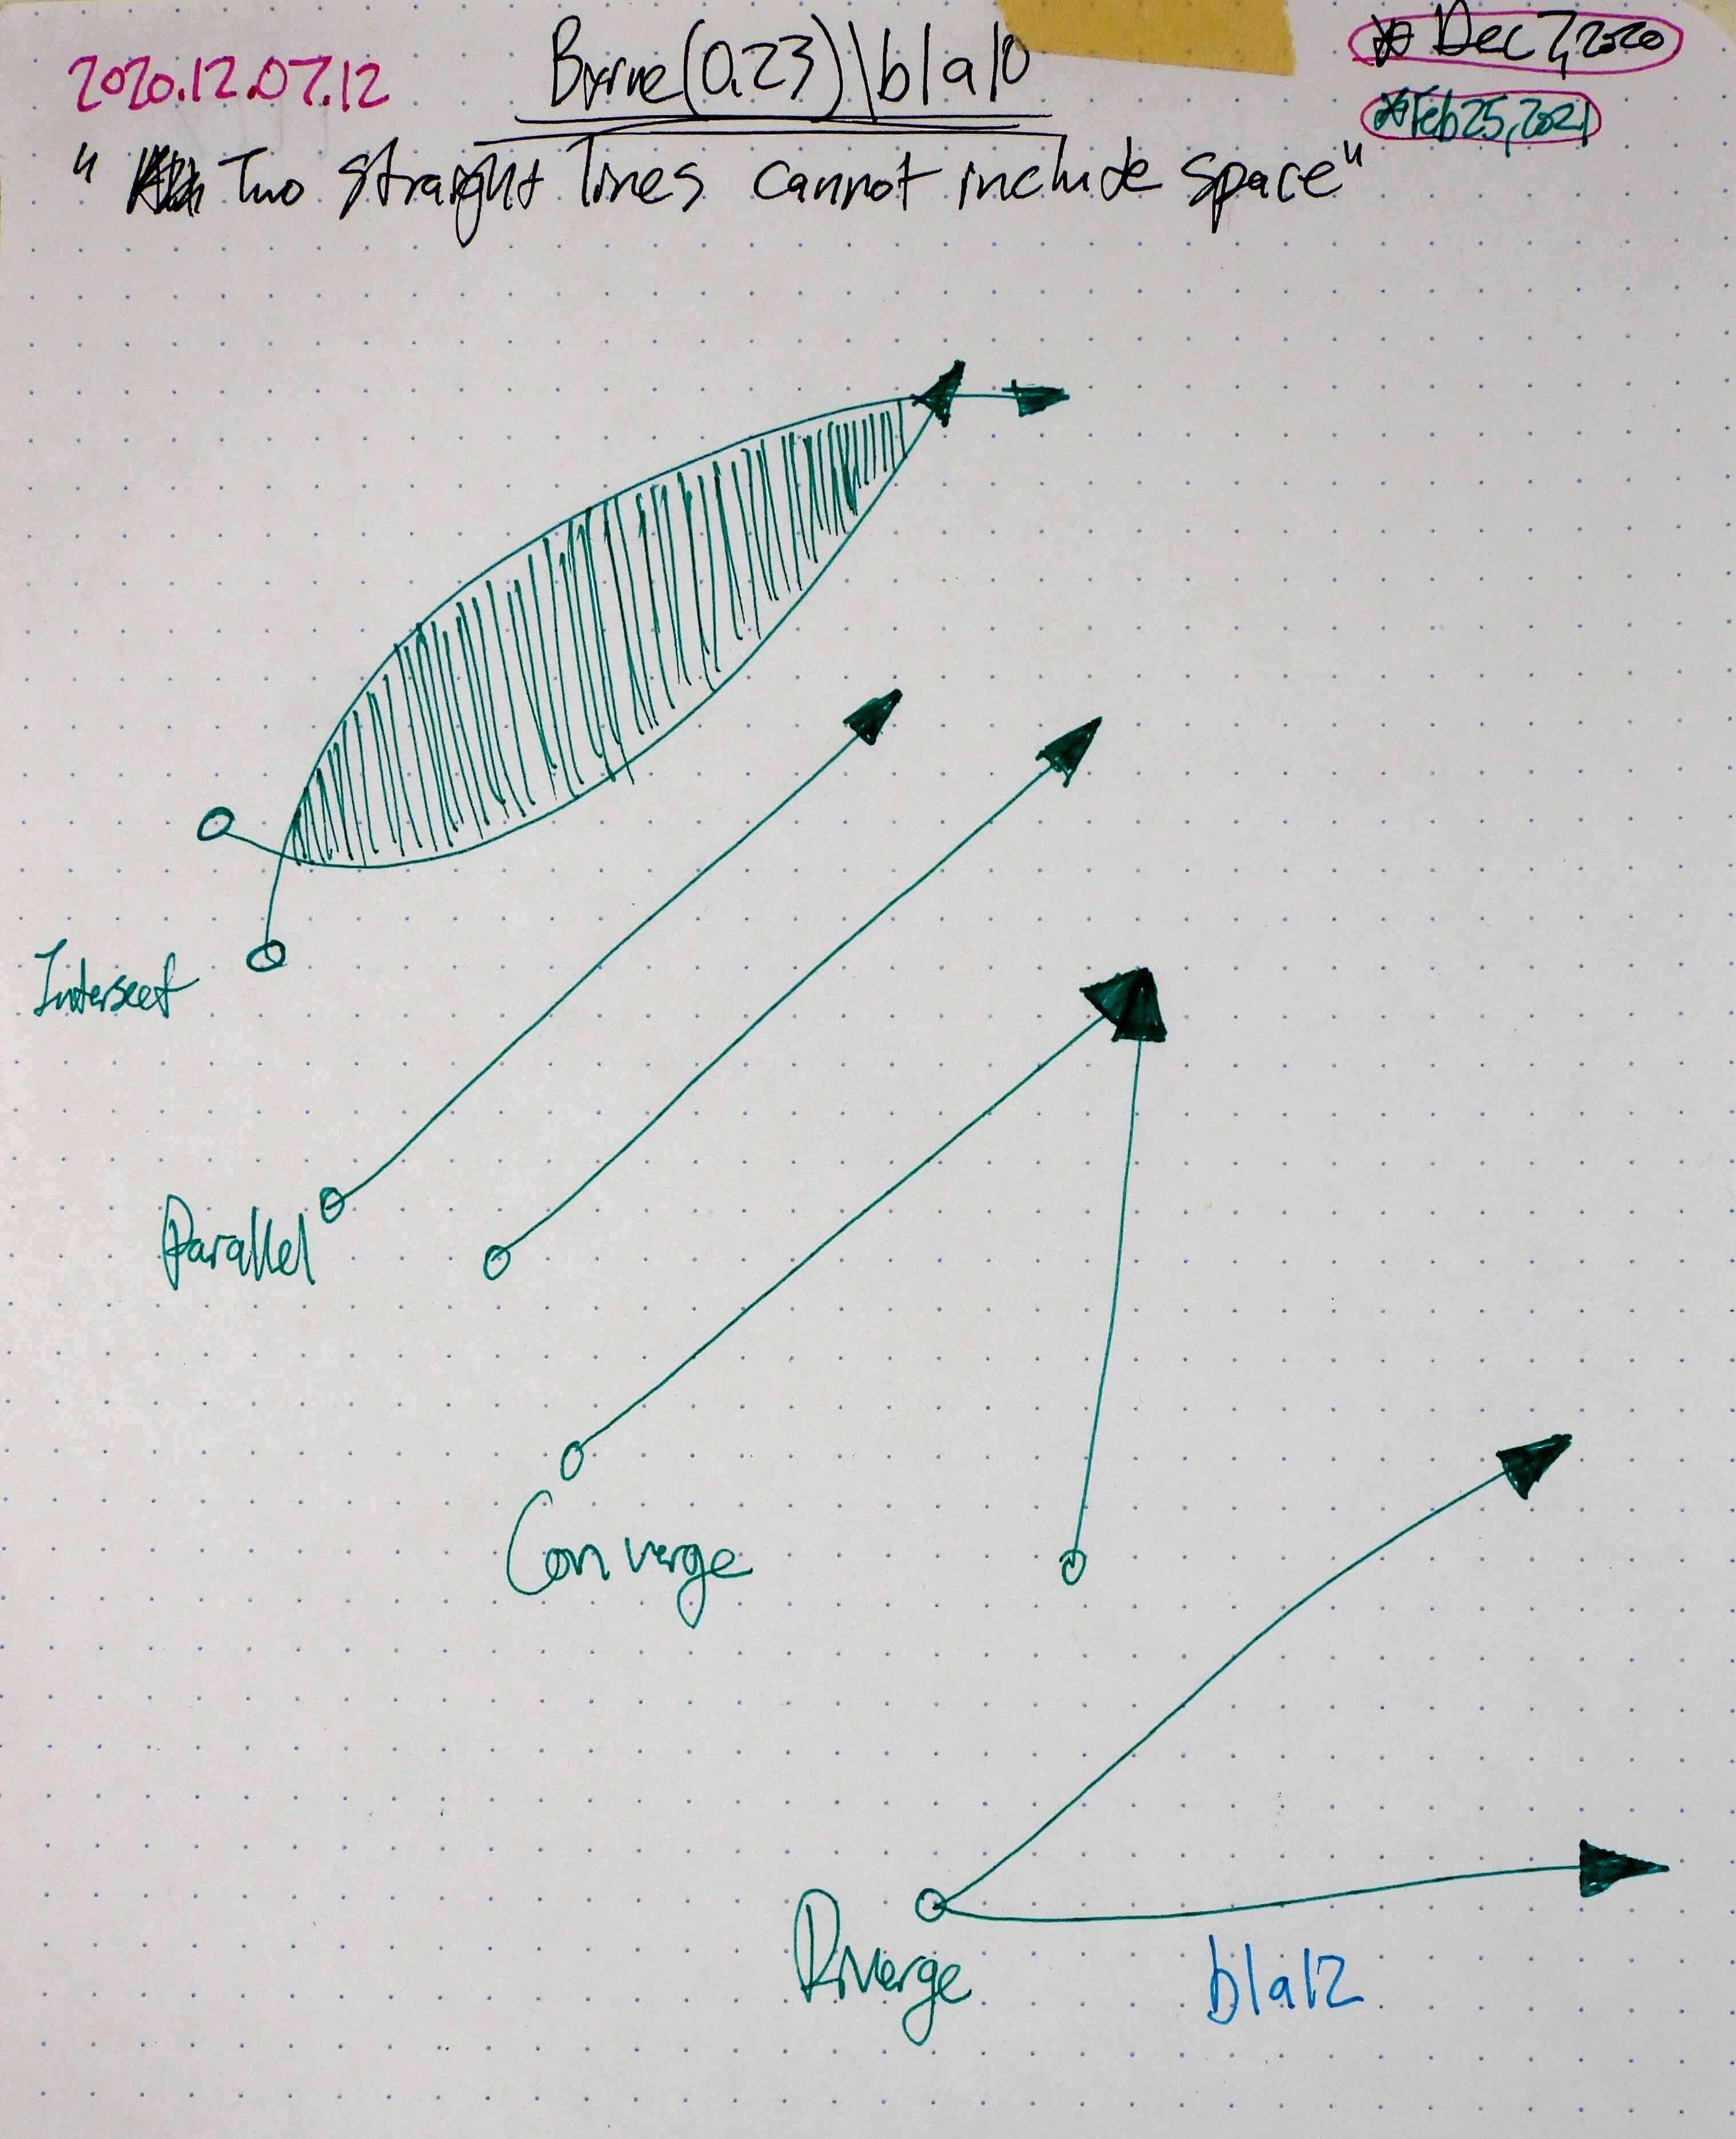 2020.12.07.12
Byrne(0.23)\b1a10
Dec 7, 2020
Feb 25, 2021
" Two straight lines cannot include space"
Intersect
Parallel
Converge
Diverge
b1a12